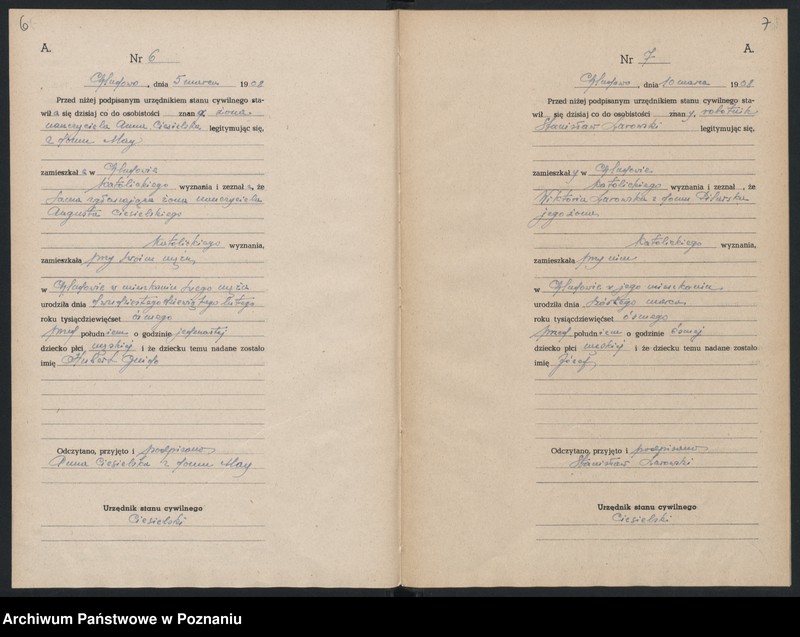 6
A.
Nr 6
, dnia 5 marca 1908
Przed niżej podpisanym urzędnikiem stanu cywilnego sta-
wiła się dzisiaj co do osobistości znana żona
nauczyciela Anna Ciesielska legitymując się,
z domu May
zamieszkała w
katolickiego wyznania i zeznała, że
żona nauczyciela
Augusta Ciesielskiego
katolickiego wyznania,
zamieszkała przy swoim mężu,
w w mieszkaniu swego męża
urodziła dnia dwudziestego dziewiątego lutego
roku tysiącdziewięćset ósmego
przed południem o godzinie jedenastej
dziecko płci męskiej i że dziecku temu nadane zostało
imię Hubert
Odczytano, przyjęto i podpisano
Anna Ciesielska z domu May
Urzędnik stanu cywilnego
Ciesielski
7
A.
Nr 7
, dnia 10 marca 1908
Przed niżej podpisanym urzędnikiem stanu cywilnego sta-
wił się dzisiaj co do osobistości znany, robotnik
Stanisław legitymując się,
zamieszkały w
katolickiego wyznania i zeznał, że
Wiktoria z domu
jego żona
katolickiego wyznania,
zamieszkała przy nim
w w jego mieszkaniu
urodziła dnia szóstego marca
roku tysiącdziewięćset ósmego
przed południem o godzinie ósmej
dziecko płci męskiej i że dziecku temu nadane zostało
imię Józef
Odczytano, przyjęto i podpisano
Stanisław
Urzędnik stanu cywilnego
Ciesielski
Archiwum Państwowe w Poznaniu